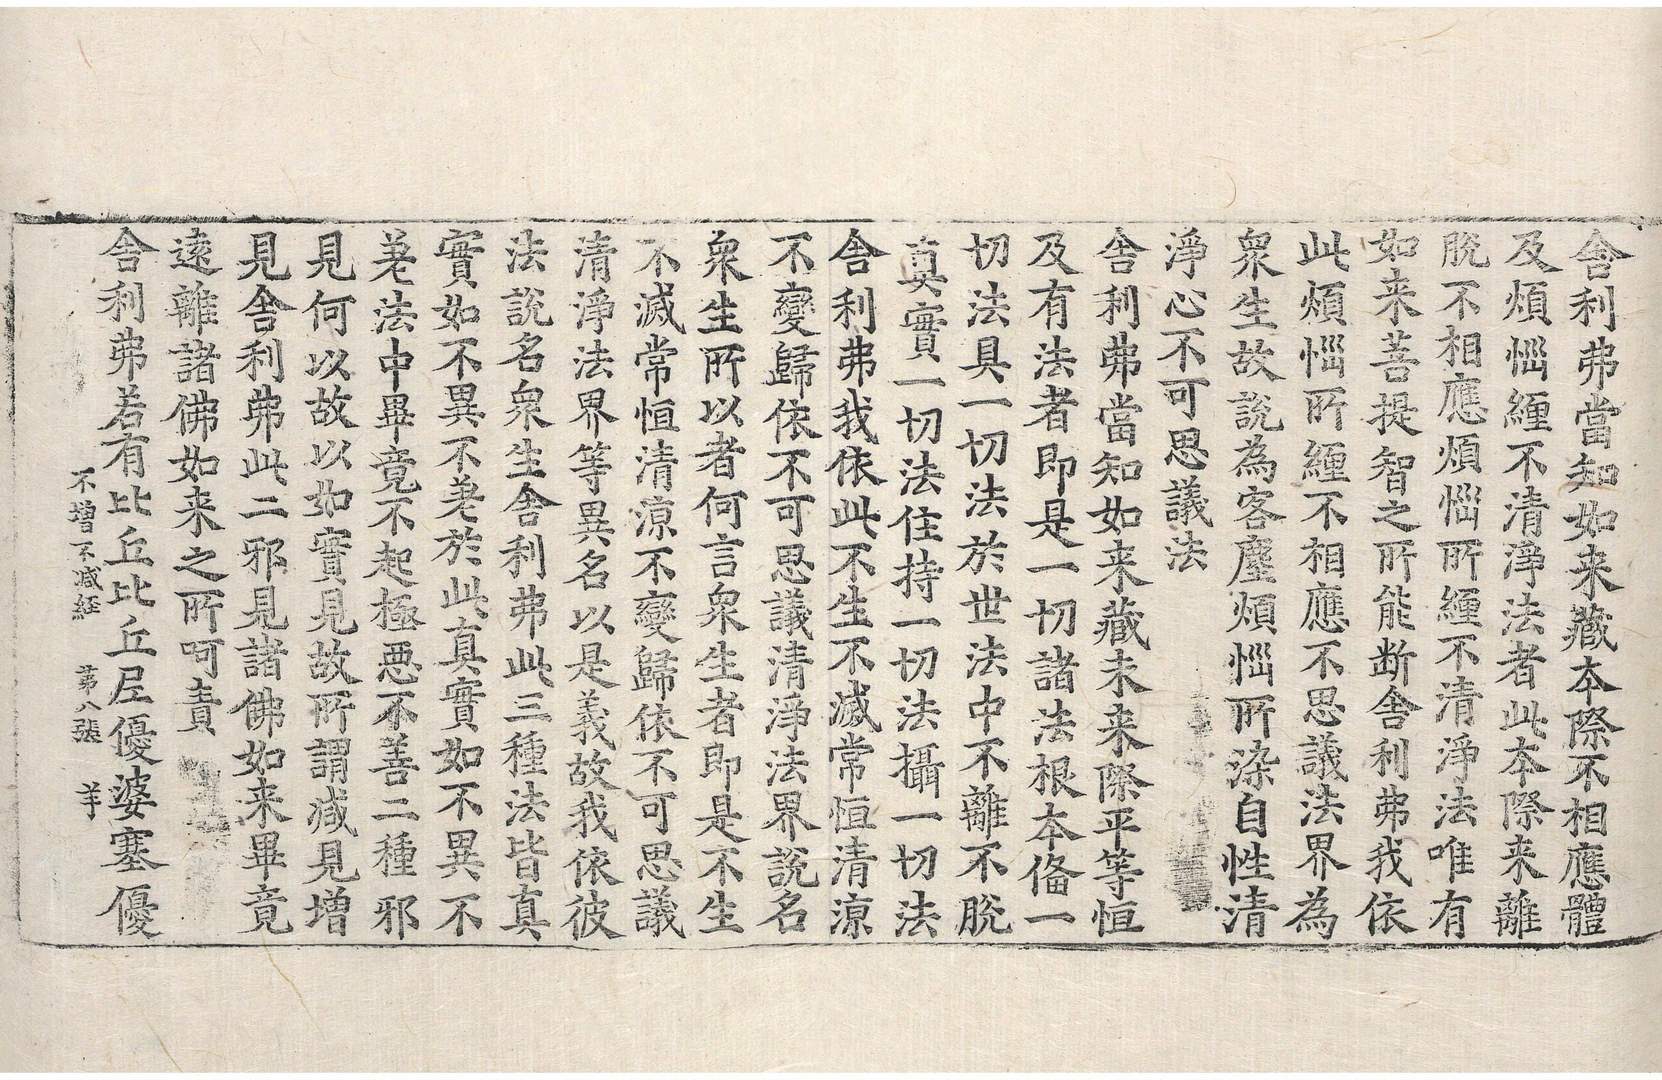 舎利弗當知如来藏本際不相應體
及煩惱纏不清淨法者此本際来離
脫不相應煩惱所纏不清淨法唯有
如来菩提智之所能断舎利弗我依
此煩惱所纏不相應不思議法界為
衆生故說為客塵煩惱所染自性清
淨心不可思議法
舎利弗當知如来藏未来際平等恒
及有法者即是一切諸法根本俻一
切法具一切法於世法中不離不脫
真實一切法住持一切法攝一切法
舎利弗我依此不生不滅常恒清涼
不變歸依不可思議清淨法界說名
衆生所以者何言衆生者即是不生
不滅常恒清涼不變歸依不可思議
清淨法界等異名以是義故我依彼
法說名衆生舎利弗此三種法皆真
實如不異不差於此真實如不異不
差法中畢竟不起極惡不善二種邪
見何以故以如實見故所謂減見增
見舎利弗此二邪見諸佛如来畢竟
遠離諸佛如来之所呵責
舎利弗若有比丘比丘尼優婆塞優
不增不減経 第八張 羊